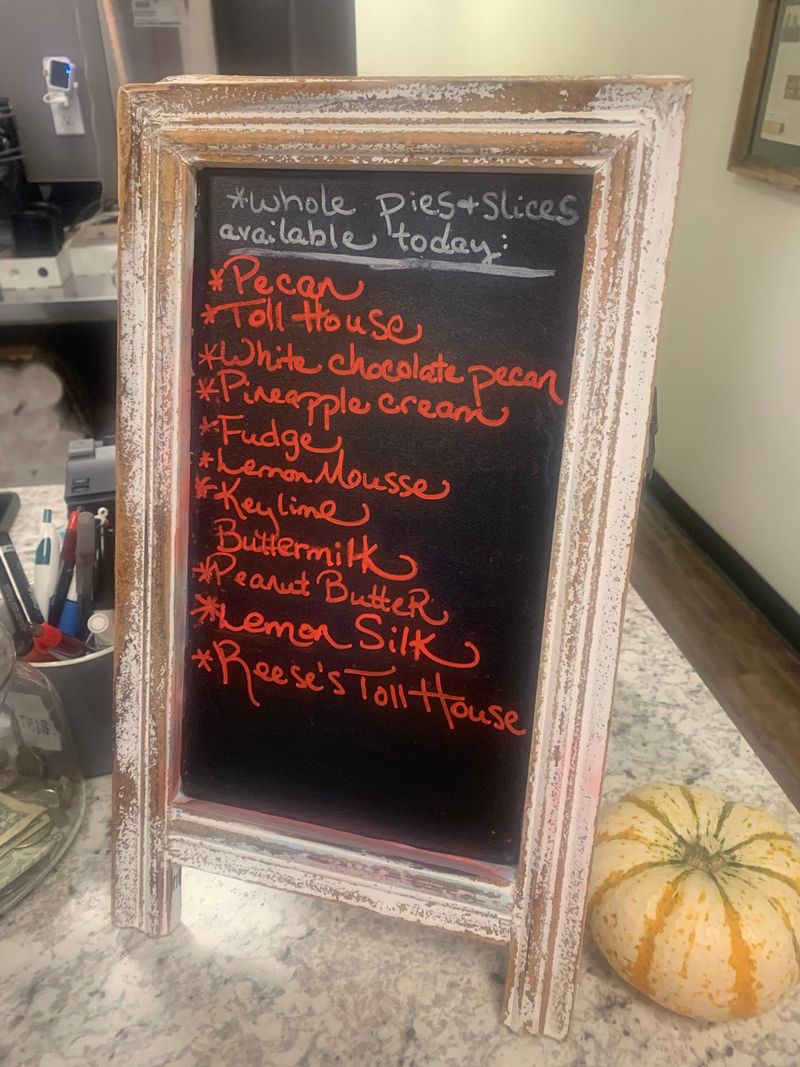 *Whole Pies + Slices
available today:
*Pecan
*Toll House
*White chocolate pecan
*Pineapple cream
*Fudge
*Lemon Mousse
*Keylime
Buttermilk
*Peanut Butter
*Lemon Silk
*Reese's Toll House
THIS